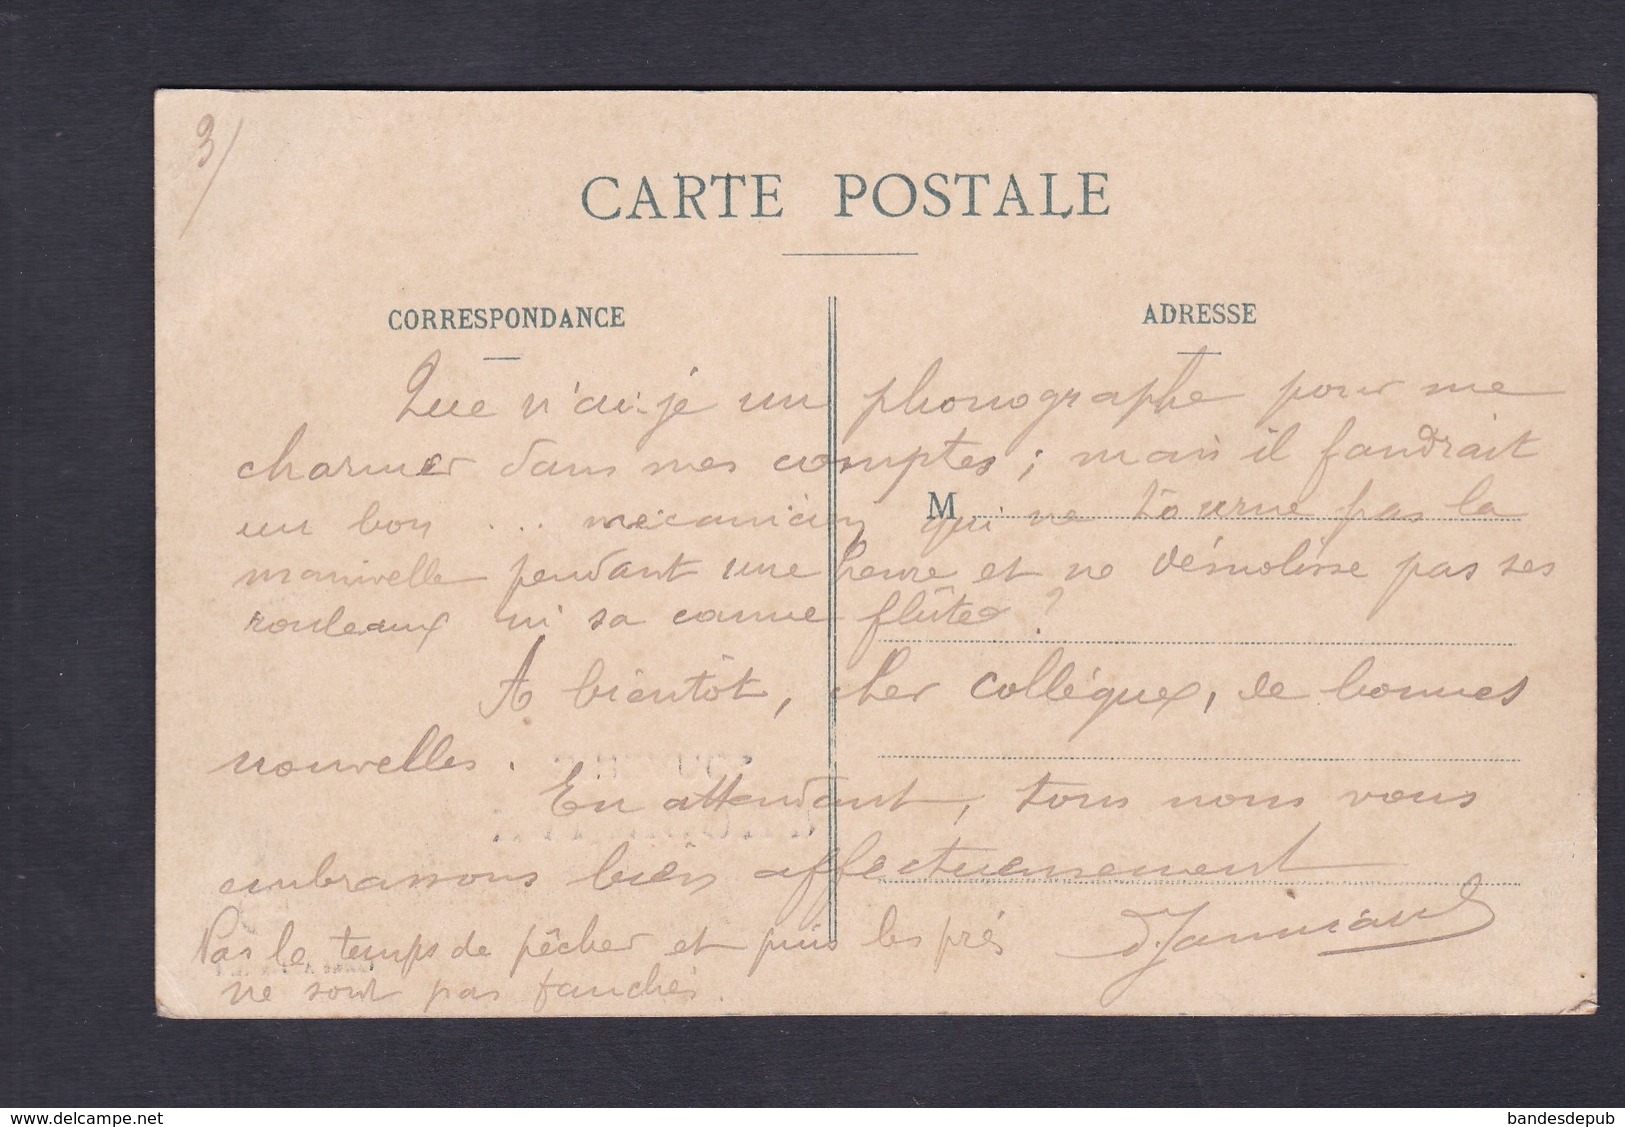 3/
CARTE POSTALE
CORRESPONDANCE
ADRESSE
M
Que n'ai-je un phonographe pour me
charmer dans mes comptes ; mais il faudrait
un bon ... mécanicien qui ne tourne pas la
manivelle pendant une heure et ne démolisse pas ses
rouleaux ni sa canne flûtée ?
A bientôt, cher collègue, de bonnes
nouvelles.
En attendant, tous nous vous
embrassons bien affectueusement
Pas le temps de pêcher et puis les prés
ne sont pas fauchés.
www.delcampe.net
bandesdepub